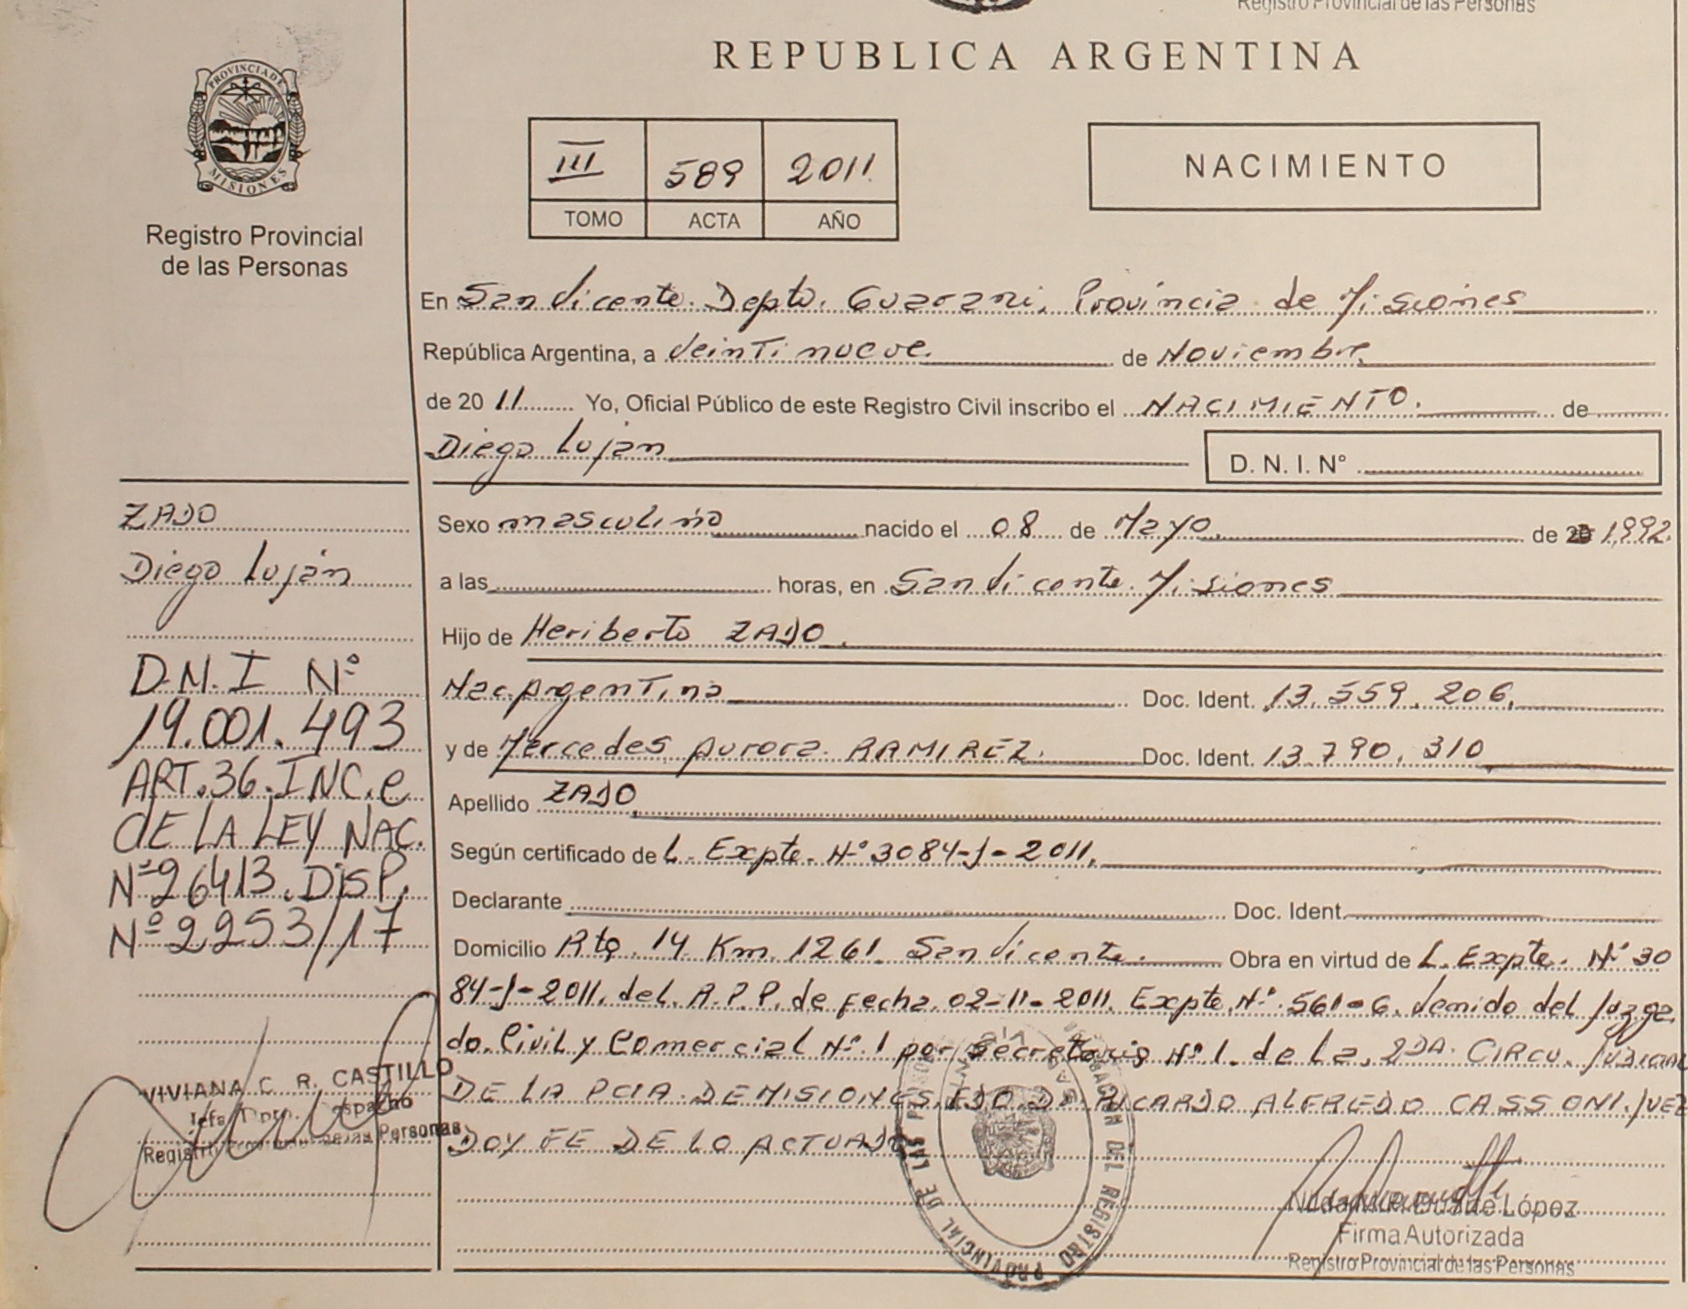 Registro Provincial de las Personas
REPUBLICA ARGENTINA
PROVINCIA DE
MISIONES
Registro Provincial
de las Personas
III 589 2011
TOMO ACTA AÑO
NACIMIENTO
En San Vicente. Depto. Guarani, Provincia de Misiones
República Argentina, a Veintinueve. de Noviembre.
de 20 11 Yo, Oficial Público de este Registro Civil inscribo el NACIMIENTO. de
Diego Luján D. N. I. Nº
Sexo masculino nacido el 08 de Mayo de 1992.
a las horas, en San Vicente. Misiones
Hijo de Heriberto ZADO.
Nac. Argentina Doc. Ident. 13.559.206.
y de Mercedes Aurora RAMIREZ. Doc. Ident. 13.790.310
Apellido ZADO
Según certificado de L. Expte. Nº 3084-J-2011.
Declarante Doc. Ident.
Domicilio Rta. 14 Km. 1261. San Vicente. Obra en virtud de L. Expte. Nº 30
84-J-2011. del. A.P.P. de Fecha. 02-11-2011. Expte. Nº. 561-6. Venido del Juzga
do. Civil y Comercial Nº. 1 por Secretaria Nº 1. de La. 2DA. CIRCU. JUDICIAL
DE LA PCIA. DE MISIONES. FDO. DR. RICARDO ALFREDO CASSONI. JUEZ
DOY FE DE LO ACTUADO
ZADO
Diego Luján
D.N.I Nº
19.001.493
ART.36.INC.e
DE LA LEY NAC.
Nº26413.DISP.
Nº2253/17
VIVIANA C. R. CASTILLO
Jefa Dpto. Despacho
Registro Provincial de las Personas
DEL REGISTRO PROVINCIAL DE LAS
de López
Firma Autorizada
Registro Provincial de las Personas